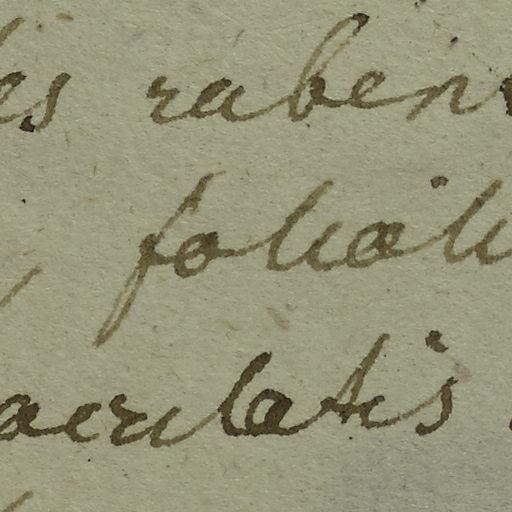 es ruben
, foliol
aculatis